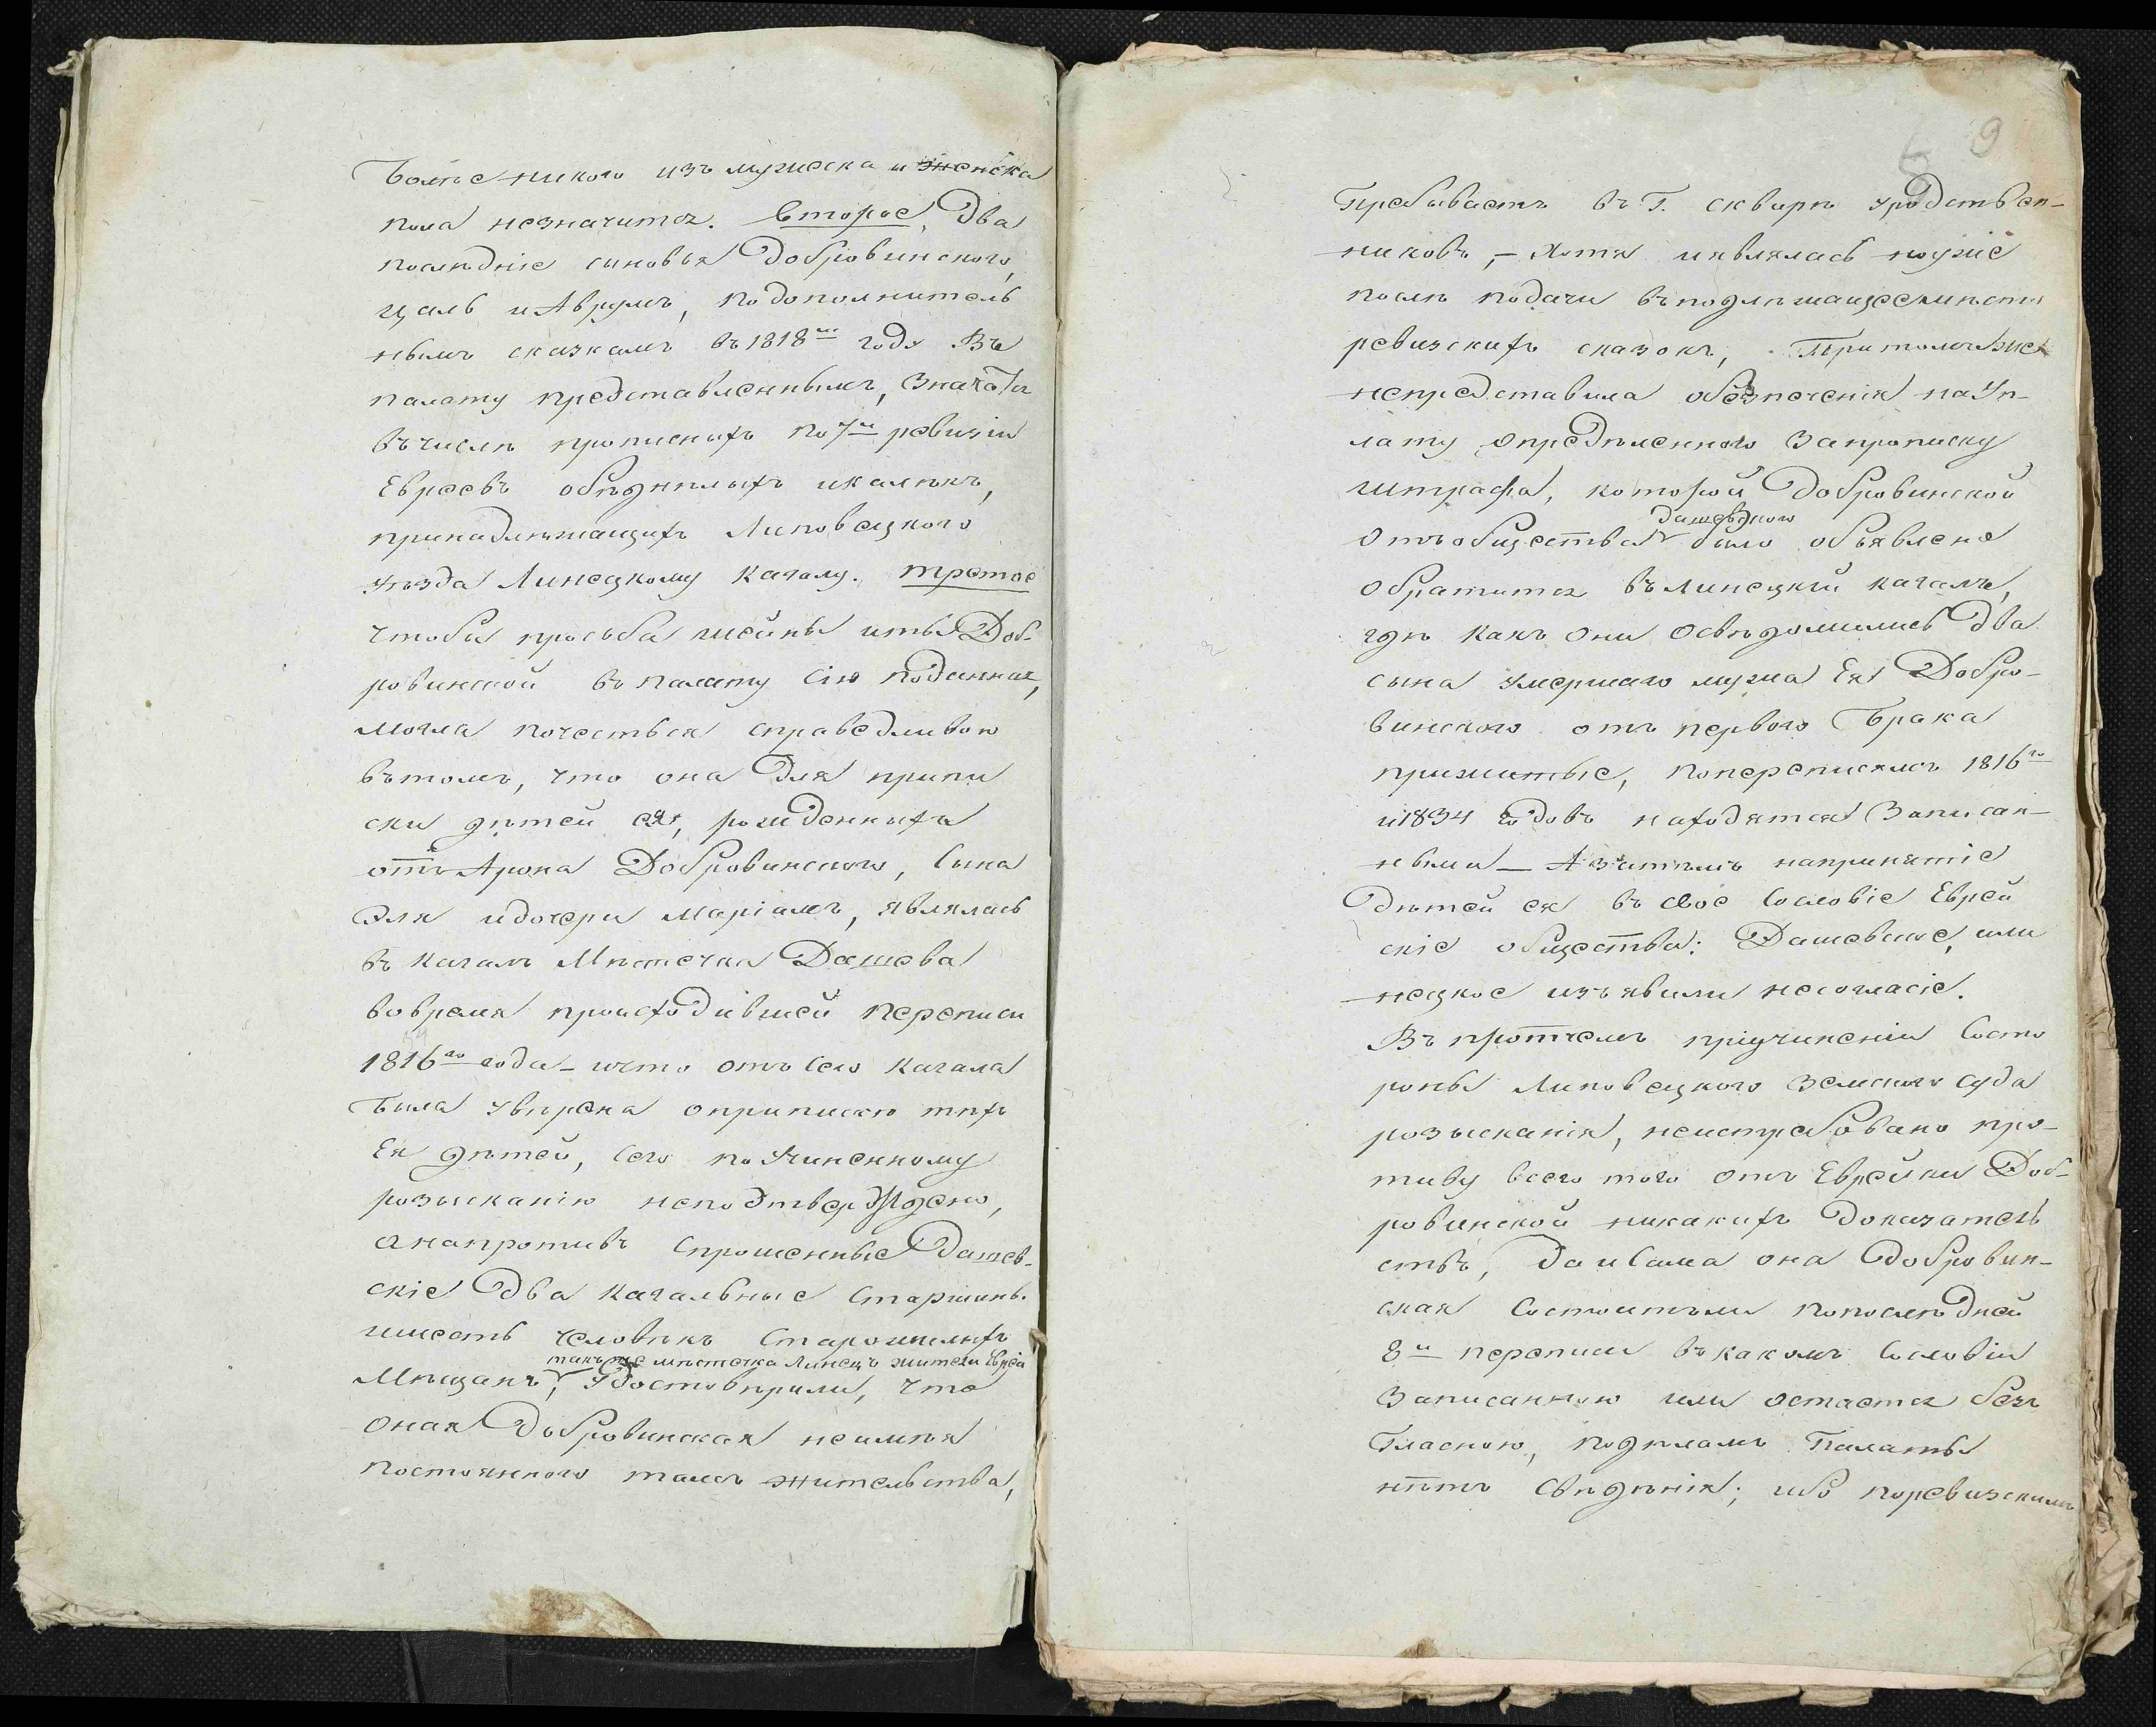 болѣе никого изъ мужеска и женска
пола незначится. Второе, Два
послѣдніе сыновья Добровинского,
Цаль и Аврумъ, по дополнитель
нымъ сказкамъ въ 1818м году въ
палату представленнымъ, значатся
въ числѣ прописныхъ по 7й ревизіи
Евреевъ обѣднѣлыхъ и калѣкъ,
принадлѣжащихъ Липовецкого
уѣзда Линецкому кагалу. третое
чтобы просьба Шейны иты Доб-
ровинской въ палату сію поданная,
могла почесться справедливою
въ томъ, что она для припи
ски дѣтей ея, рожденныхъ
отъ Арона Добровинского, сына
Эля и дочери Маріамъ, являлась
въ кагалъ Мѣстечка Дашева
во время происходившей переписи
1816го года - и что отъ сего кагала
была увѣрена о припискѣ тѣхъ
Ея дѣтей, сего по учиненному
розысканію неподтверждено,
а напротивъ спрошенные Дашев-
скіе два кагальные старшины.
шесть человѣкъ старожилыхъ
такъ же мѣстечка Линецъ жители Евреи
Мѣщанъ, удостовѣрили, что
оная Добровинская неимѣя
постоянного тамъ жительства,
9
Пребываетъ въ Г. Сквирѣ у родствен-
никовъ, - хотя и являлась но уже
послѣ подачи въ подлѣжащее мѣсто
ревизскихъ сказокъ, При томъ же
непредставила обезпеченія на уп-
лату опредѣленного за прописку
штрафа, которой Добровинской
Дашевского
отъ общества было объявлено
обратится въ Линецкій кагалъ,
гдѣ какъ они освѣдомились два
сына умершаго мужа Ея Добро-
винского отъ первого брака
прижитые, по переписямъ 1816го
и 1834 годовъ находятся записан-
ными - А за тѣмъ на принятіе
дѣтей ея въ свое сословіе Еврей
скіе общества: Дашевское, или
нецкое изъявили несогласіе.
Въ протчемъ при учиненіи со сто
роны Липовецкого земского суда
розысканія, неистребовано про-
тиву всего того отъ Еврейки Доб-
ровинской никакихъ доказатель
ствъ, да и сама она Добровин-
ская состоитъ ли по послѣдней
8й переписи въ какомъ сословіи
записанною или остается безъ
гласною, по дѣламъ Палаты
нѣтъ свѣдѣнія; ибо по ревизскимъ